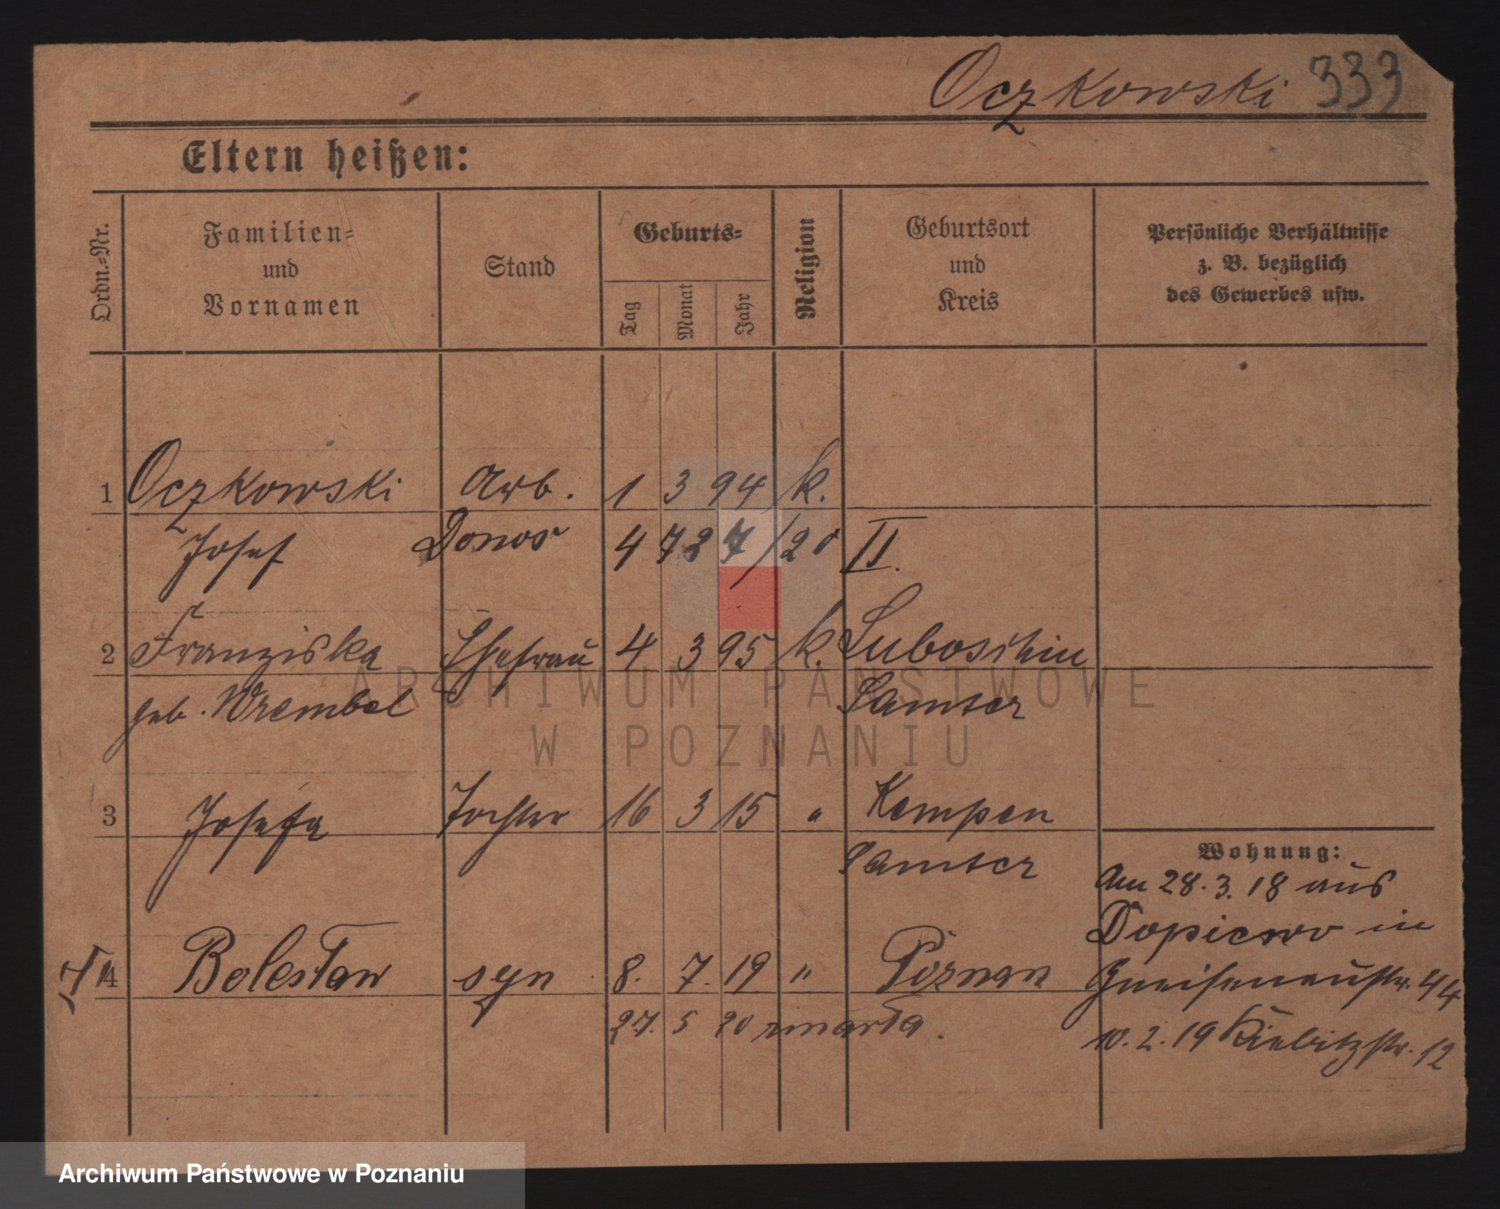 Oczkowski 333
Eltern heißen:
Ordn.-Nr.
Familien-
und
Vornamen
Stand
Geburts-
Tag
Monat
Jahr
Religion
Geburtsort
und
Kreis
Persönliche Verhältnisse
z. B. bezüglich
des Gewerbes usw.
1 Oczkowski Arb. 1 3 94 k.
Josef II.
2 Franziska Ehefrau 4 3 95 k. Luboschin
geb. Wrembel Samter
3 Josefa Tochter 16 3 15 " Kempen
Samter
Wohnung:
Am 28.3.18 aus
Dopiewo in
Gneisenaustr. 44
10.2.19 Kiebitzstr. 12
4 Bolesław syn 8. 7. 19 " Poznań
27. 5 20 zmarła.
ARCHIWUM PAŃSTWOWE
W POZNANIU
Archiwum Państwowe w Poznaniu